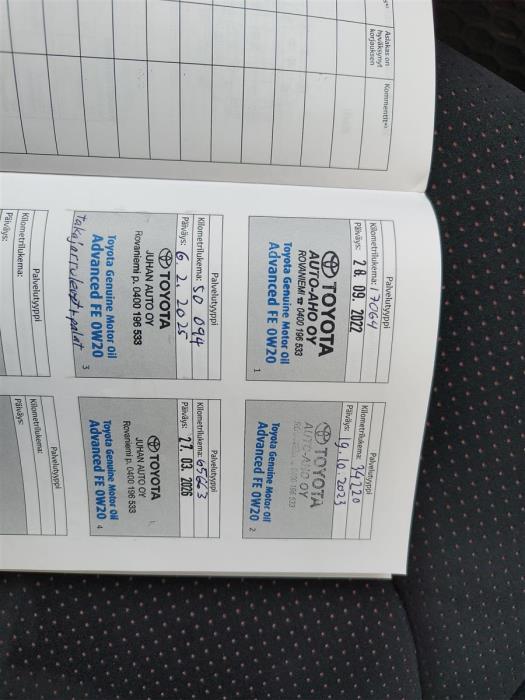 Asiakas on
hyväksynyt
korjauksen
Kommentit
Palvelutyyppi
Kilometrilukema: 17064
Päiväys: 28. 09. 2022
TOYOTA
AUTO-AHO OY
ROVANIEMI ☎ 0400 196 533
Toyota Genuine Motor Oil
Advanced FE 0W20
1
Palvelutyyppi
Kilometrilukema: 34220
Päiväys: 19.10.2023
TOYOTA
AUTO-AHO OY
0400 196 533
Toyota Genuine Motor Oil
Advanced FE 0W20
2
Palvelutyyppi
Kilometrilukema: 50 094
Päiväys: 6. 2. 2025
TOYOTA
JUHAN AUTO OY
Rovaniemi p. 0400 196 533
Toyota Genuine Motor Oil
Advanced FE 0W20
3
Palvelutyyppi
Kilometrilukema: 65663
Päiväys: 27. 03. 2026
TOYOTA
JUHAN AUTO OY
Rovaniemi p. 0400 196 533
Toyota Genuine Motor Oil
Advanced FE 0W20
4
Palvelutyyppi
Kilometrilukema:
Päiväys:
Palvelutyyppi
Kilometrilukema:
Päiväys: